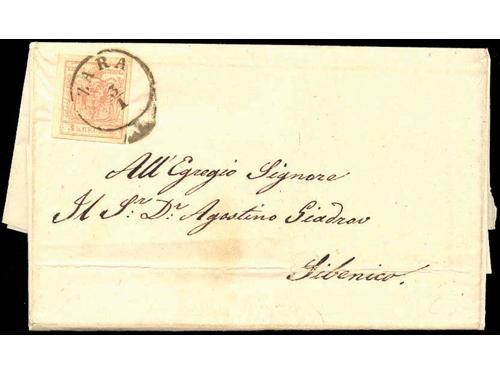 ZARA
3
1
All'Egregio Signore
Il S:r D:r Agostino Giadrov
Sibenico.